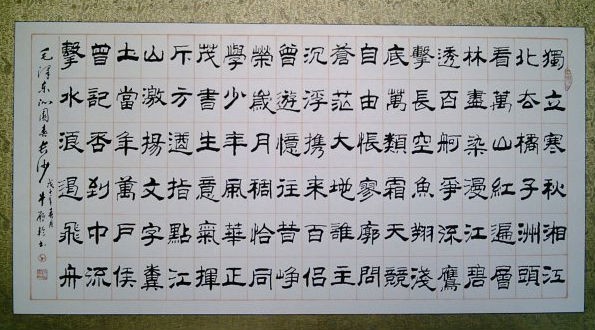 獨立寒秋湘江
北去橘子洲頭
看萬山紅遍層
林盡染漫江碧
透百舸爭流鷹
擊長空魚翔淺
底萬類霜天競
自由悵寥廓問
蒼茫大地誰主
沉浮携來百侶
曾遊憶往昔崢
榮歲月稠恰同
學少年風華正
茂書生意氣揮
斥方遒指點江
山激揚文字糞
土當年萬戶侯
曾記否到中流
擊水浪遏飛舟
毛澤東沁園春長沙